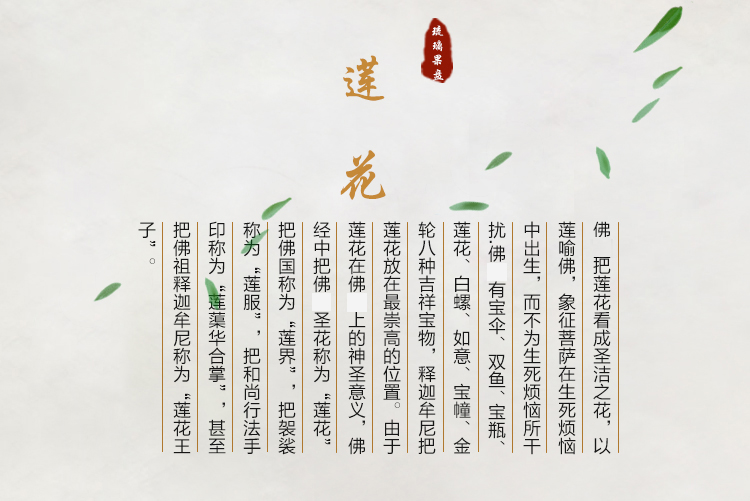 琉璃果盘
莲花
佛 把莲花看成圣洁之花，以
莲喻佛，象征菩萨在生死烦恼
中出生，而不为生死烦恼所干
扰，佛 有宝伞、双鱼、宝瓶、
莲花、白螺、如意、宝幢、金
轮八种吉祥宝物，释迦牟尼把
莲花放在最崇高的位置。由于
莲花在佛 上的神圣意义，佛
经中把佛 圣花称为“莲花”
把佛国称为“莲界”，把袈裟
称为“莲服”，把和尚行法手
印称为“莲蕖华合掌”，甚至
把佛祖释迦牟尼称为“莲花王
子”。